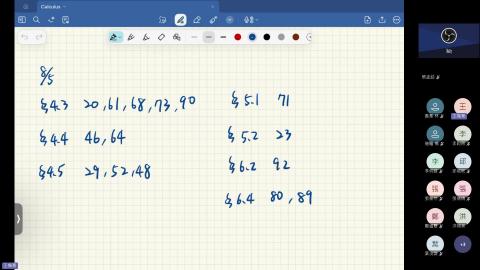 Calculus
8/5
§4.3 20, 61, 68, 73, 90
§4.4 46, 64
§4.5 29, 52, 48
§5.1 71
§5.2 23
§6.2 92
§6.4 80, 89
王
李
李
邱
張
張
鄭
洪
葉